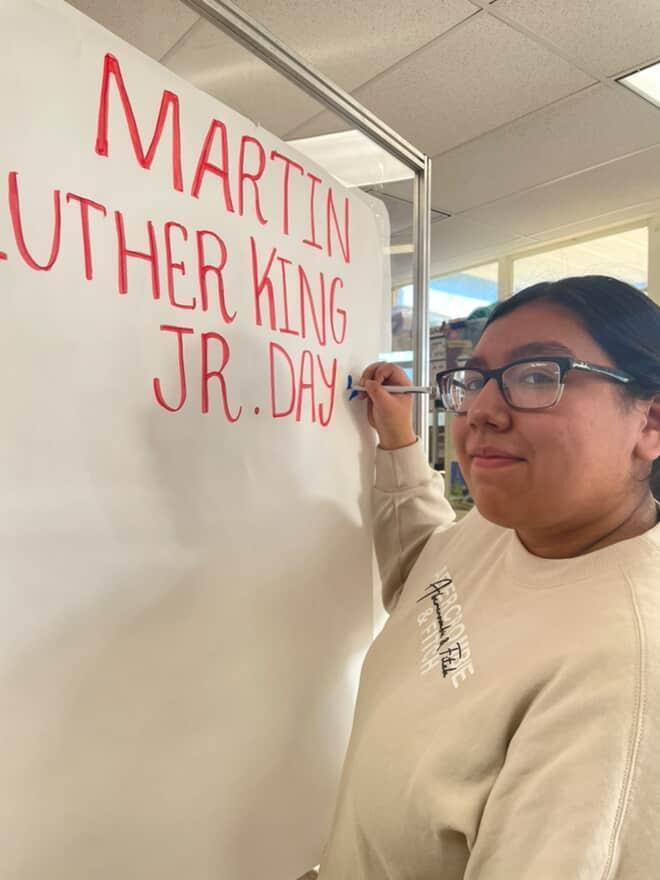 MARTIN
LUTHER KING
JR. DAY
ABERCROMBIE
& FITCH
Abercrombie & Fitch